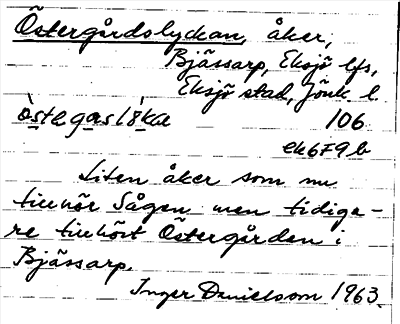 Östergårdslyckan, åker,
Bjässarp, Eksjö lfs,
Eksjö stad, Jönk. l.
òstegasl8́ka 106
ek679b
Liten åker som nu
tillhör Sågen men tidiga-
re tillhört Östergården i
Bjässarp.
Inger Danielsson 1963.